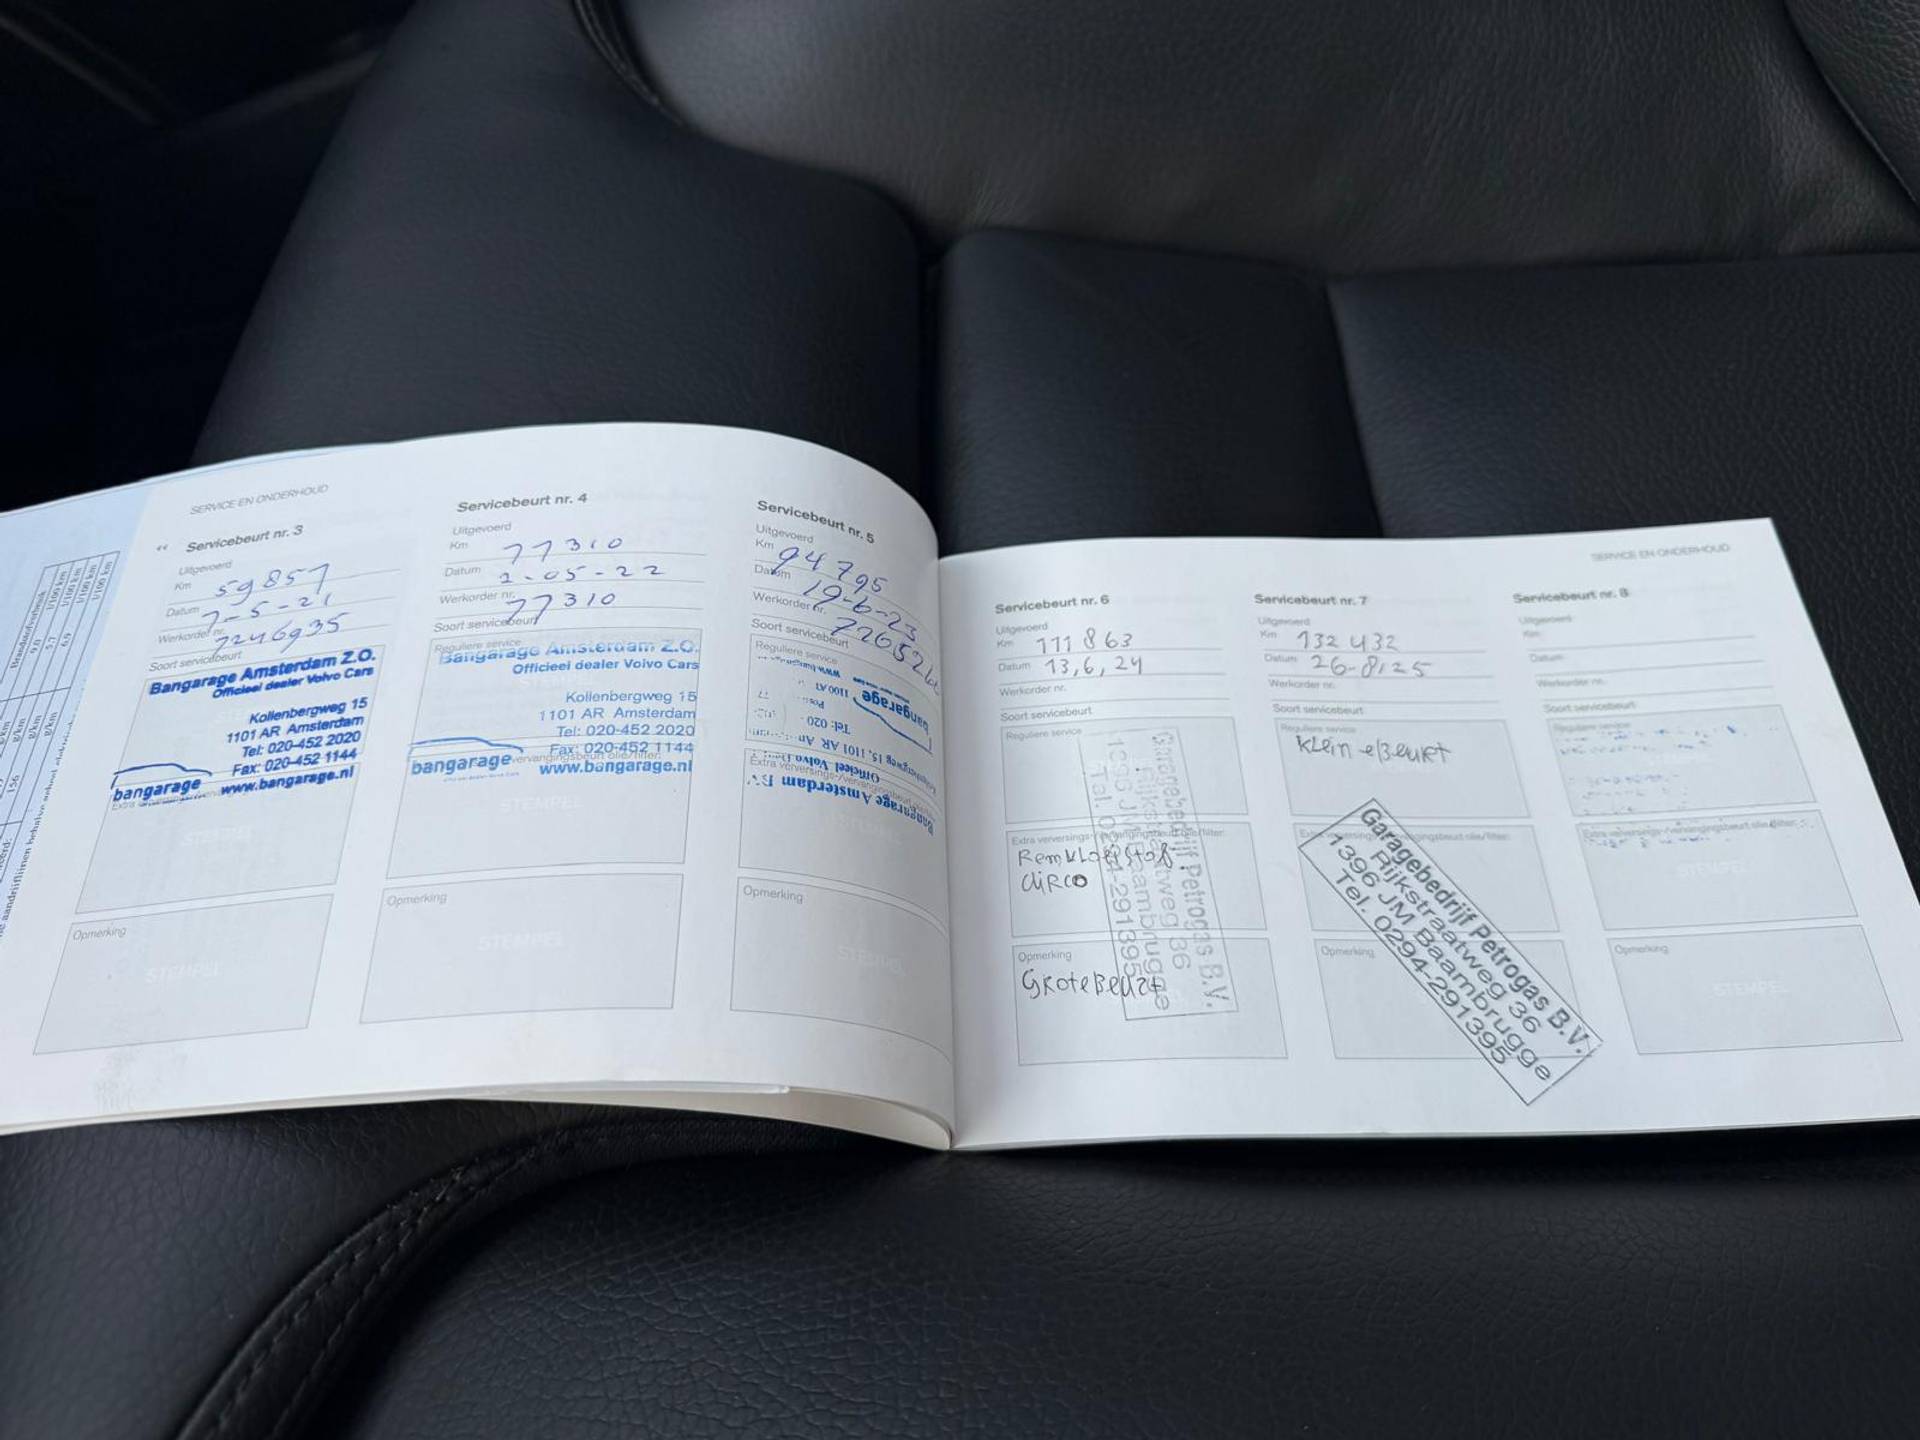 SERVICE EN ONDERHOUD
Servicebeurt nr. 3
Uitgevoerd
Km 59857
Datum 7-5-21
Werkorder nr. 7246935
Soort servicebeurt
Bangarage Amsterdam Z.O.
Officieel dealer Volvo Cars
Kollenbergweg 15
1101 AR Amsterdam
Tel: 020-452 2020
Fax: 020-452 1144
bangarage www.bangarage.nl
STEMPEL
Opmerking
STEMPEL
Servicebeurt nr. 4
Uitgevoerd
Km 77310
Datum 2-05-22
Werkorder nr. 77310
Soort servicebeurt
Reguliere service
Bangarage Amsterdam Z.O.
Officieel dealer Volvo Cars
Kollenbergweg 15
1101 AR Amsterdam
Tel: 020-452 2020
Fax: 020-452 1144
bangarage www.bangarage.nl
STEMPEL
Opmerking
STEMPEL
Servicebeurt nr. 5
Uitgevoerd
Km 94795
Datum 19-6-23
Werkorder nr.
Soort servicebeurt
Reguliere service
bangarage
Tel: 020
1101 AR
Officieel Volvo
Bangarage Amsterdam
Opmerking
STEMPEL
SERVICE EN ONDERHOUD
Servicebeurt nr. 6
Uitgevoerd
Km 111863
Datum 13,6,24
Werkorder nr.
Soort servicebeurt
Reguliere service
Extra verversings-/vervangingsbeurt olie/filter:
Opmerking
Grote Beurt
Garagebedrijf Petrogas B.V.
Rijkstraatweg 36
1396 JM Baambrugge
Tel. 0294-291395
Servicebeurt nr. 7
Uitgevoerd
Km 132432
Datum 26-8,25
Werkorder nr.
Soort servicebeurt
Reguliere service
Kleine Beurt
Extra verversings-/vervangingsbeurt olie/filter:
Opmerking
Garagebedrijf Petrogas B.V.
Rijkstraatweg 36
1396 JM Baambrugge
Tel. 0294-291395
Servicebeurt nr. 8
Uitgevoerd
Km
Datum
Werkorder nr.
Soort servicebeurt
Reguliere service
Extra verversings-/vervangingsbeurt olie/filter:
STEMPEL
Opmerking
STEMPEL